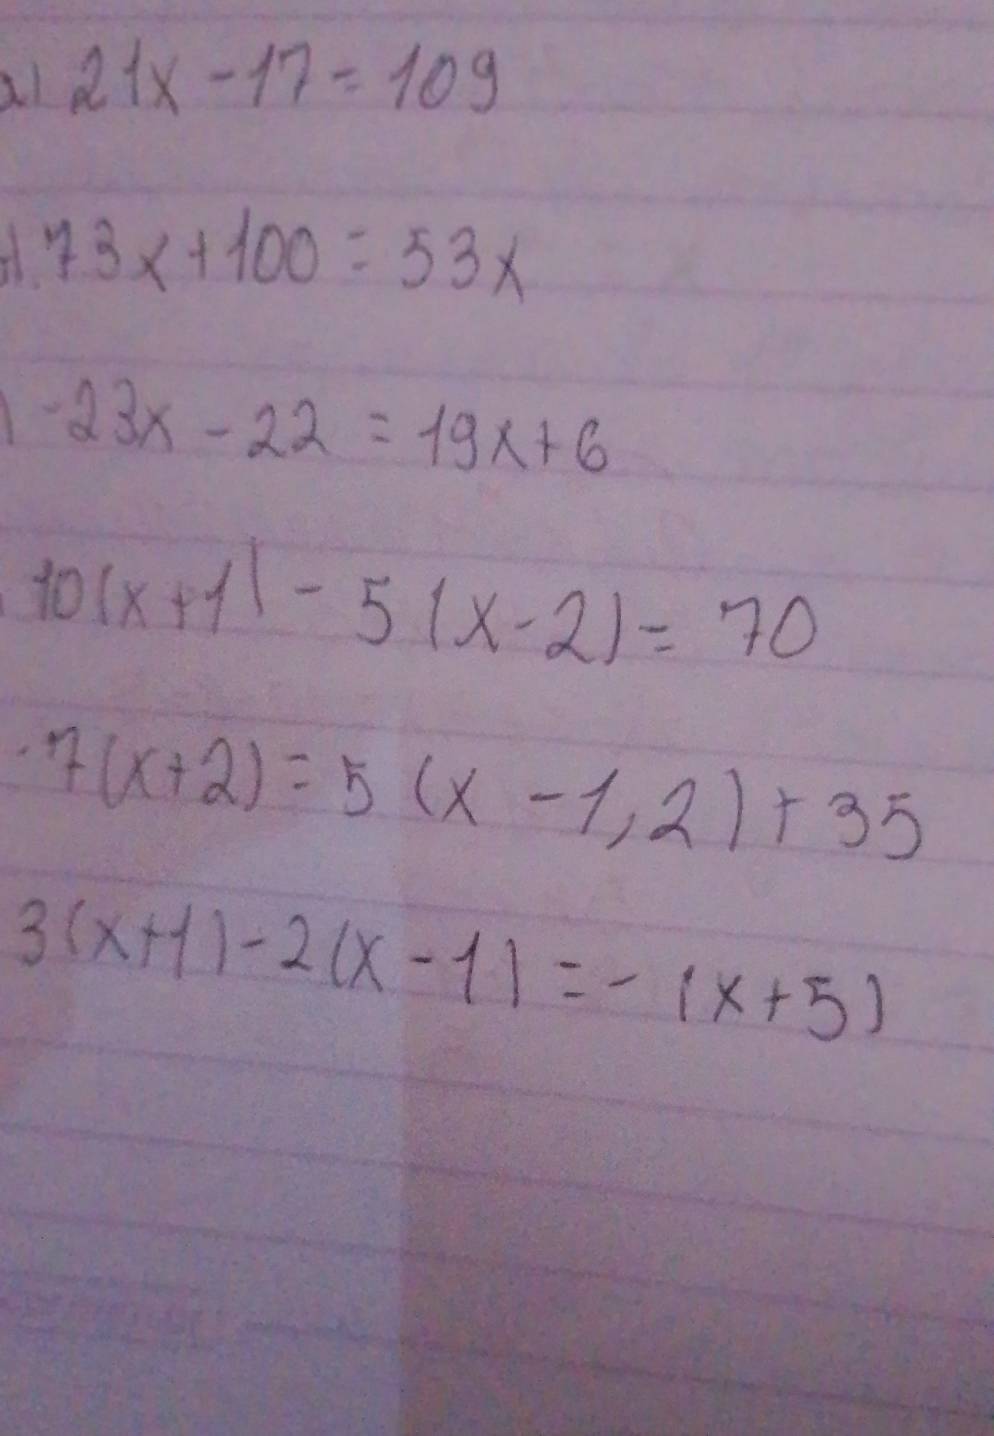 a) 21x - 17 = 109
73x + 100 = 53x
) -23x - 22 = 19x + 6
10(x + 1) - 5(x - 2) = 70
-7(x + 2) = 5(x - 1,2) + 35
3(x + 1) - 2(x - 1) = -(x + 5)